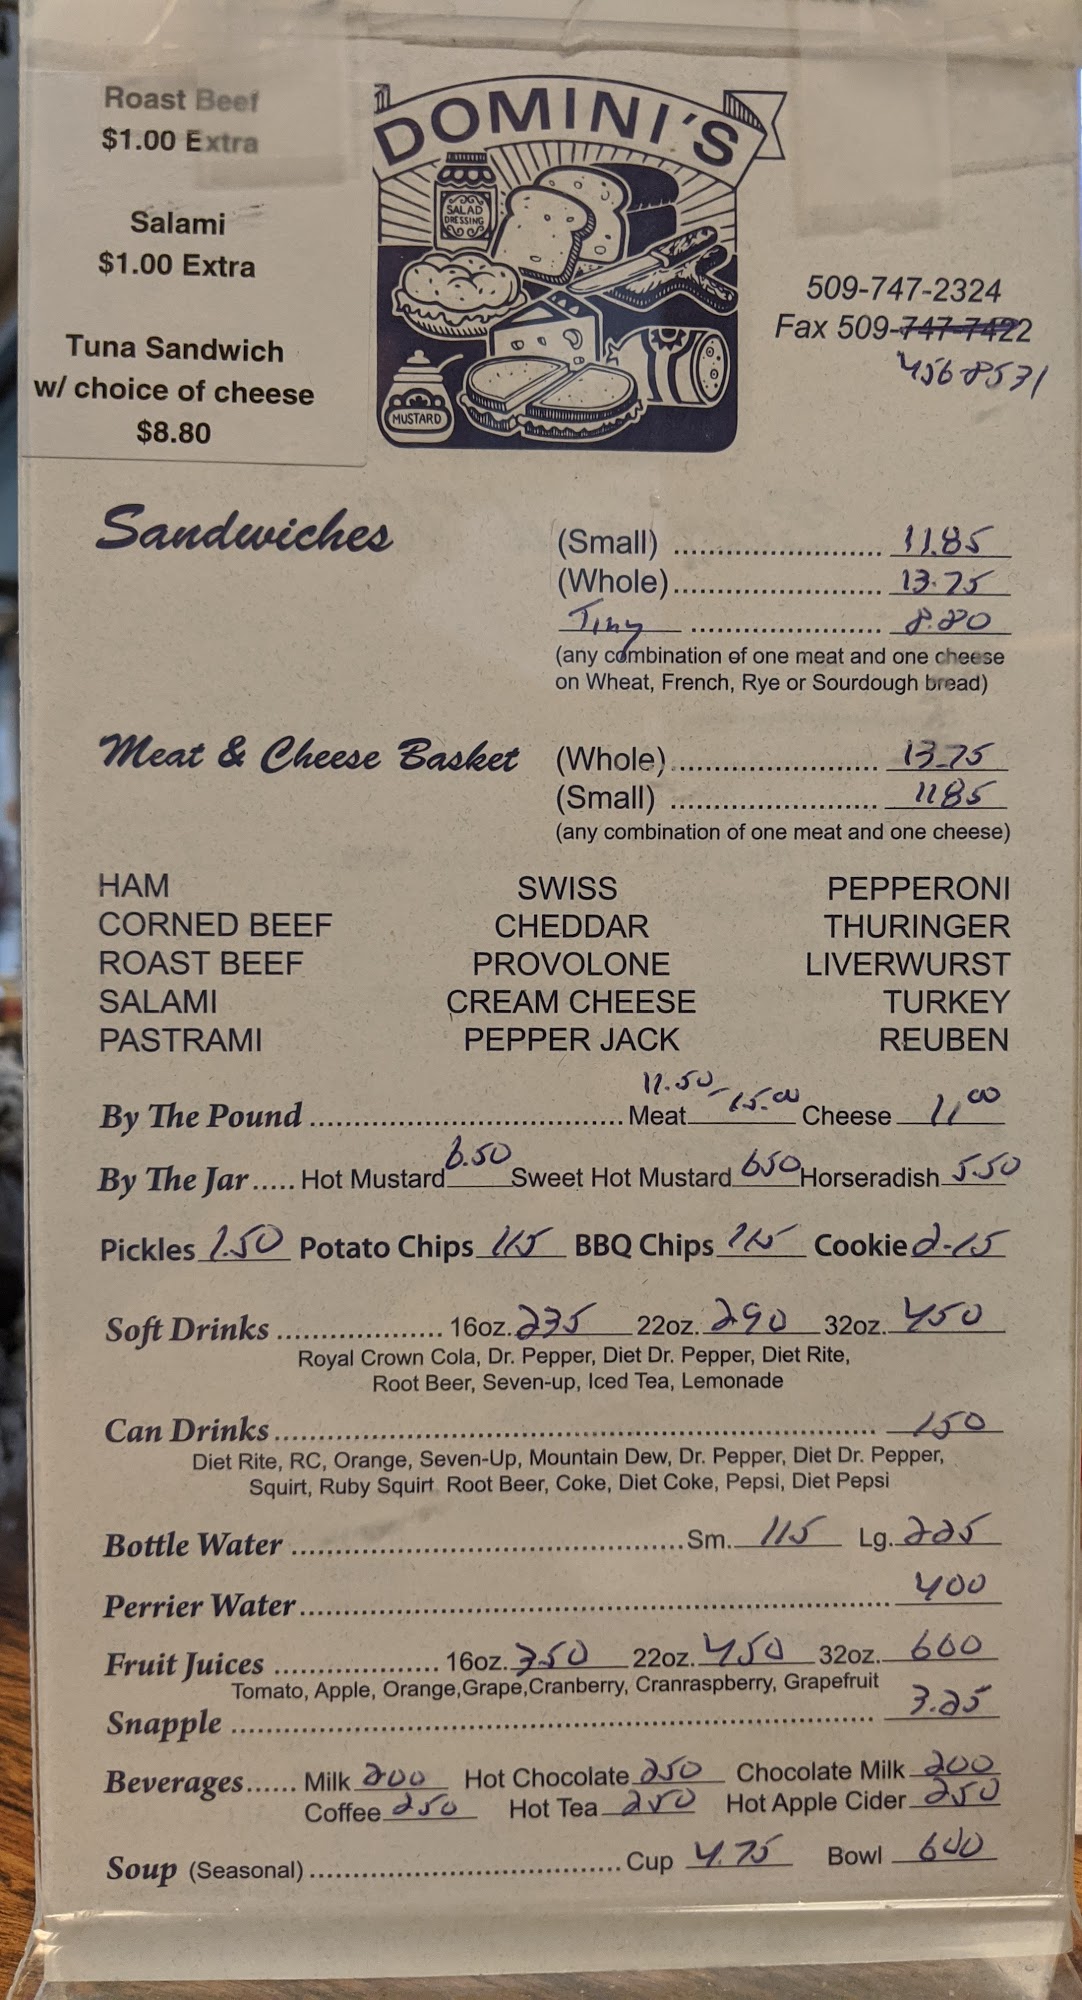 Roast Beef
$1.00 Extra
Salami
$1.00 Extra
Tuna Sandwich
w/ choice of cheese
$8.80
DOMINI'S
SALAD
DRESSING
MUSTARD
509-747-2324
Fax 509-747-7422
456-8531
Sandwiches (Small) ........................ 11.85
(Whole)........................ 13.75
Tiny ...................... 8.80
(any combination of one meat and one cheese
on Wheat, French, Rye or Sourdough bread)
Meat & Cheese Basket (Whole)........................ 13.75
(Small) ........................ 1185
(any combination of one meat and one cheese)
HAM SWISS PEPPERONI
CORNED BEEF CHEDDAR THURINGER
ROAST BEEF PROVOLONE LIVERWURST
SALAMI CREAM CHEESE TURKEY
PASTRAMI PEPPER JACK REUBEN
By The Pound .................................... Meat 11.50-15.00 Cheese 11.00
By The Jar ..... Hot Mustard 6.50 Sweet Hot Mustard 650 Horseradish 5.50
Pickles 1.50 Potato Chips 115 BBQ Chips 115 Cookie 2-15
Soft Drinks ................... 16oz. 235 22oz. 290 32oz. 450
Royal Crown Cola, Dr. Pepper, Diet Dr. Pepper, Diet Rite,
Root Beer, Seven-up, Iced Tea, Lemonade
Can Drinks ...................................................................... 150
Diet Rite, RC, Orange, Seven-Up, Mountain Dew, Dr. Pepper, Diet Dr. Pepper,
Squirt, Ruby Squirt Root Beer, Coke, Diet Coke, Pepsi, Diet Pepsi
Bottle Water ............................................. Sm. 115 Lg. 225
Perrier Water .................................................................... 400
Fruit Juices ................... 16oz. 350 22oz. 450 32oz. 600
Tomato, Apple, Orange,Grape,Cranberry, Cranraspberry, Grapefruit
Snapple .......................................................................... 3.25
Beverages ...... Milk 200 Hot Chocolate 250 Chocolate Milk 200
Coffee 250 Hot Tea 250 Hot Apple Cider 250
Soup (Seasonal) .................................... Cup 4.75 Bowl 600